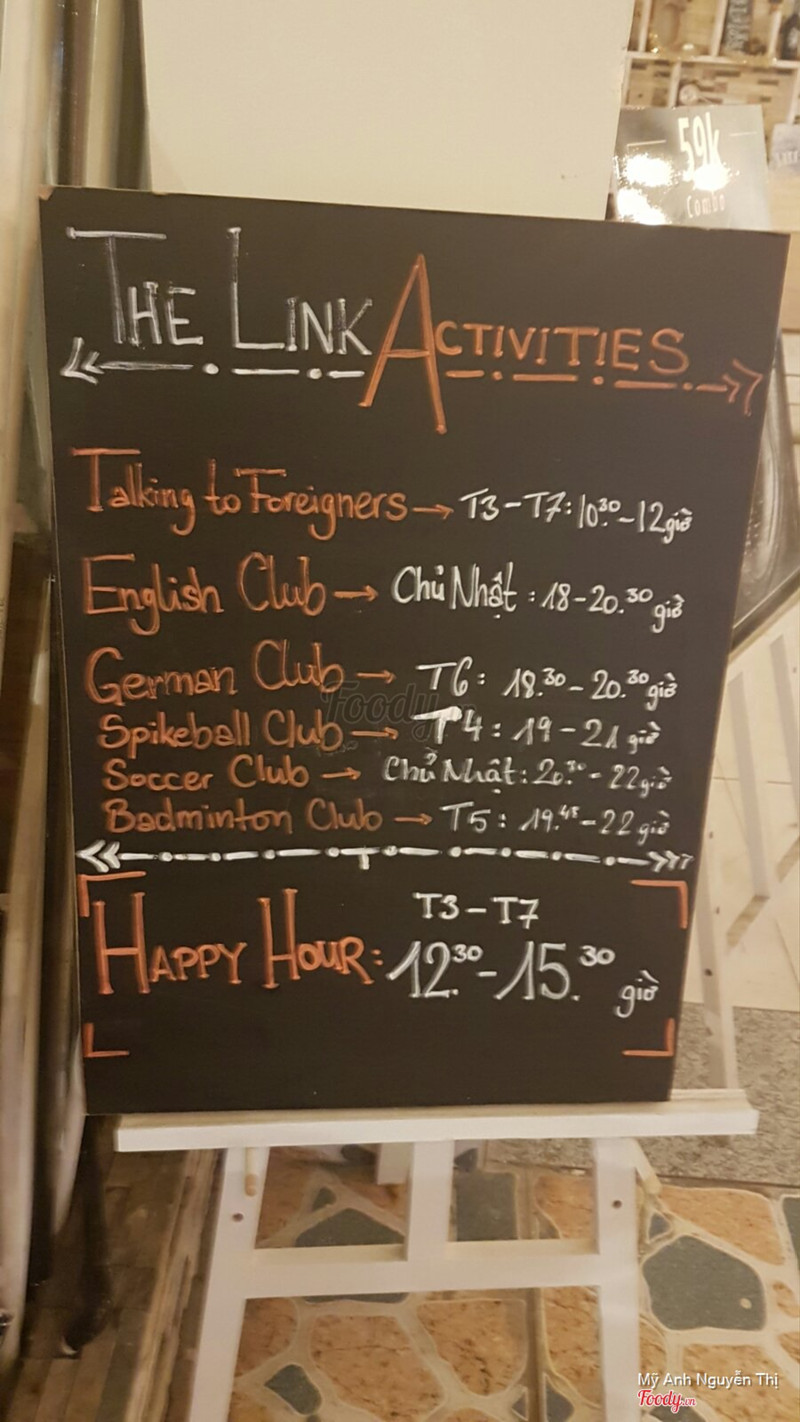 59k
Combo
THE LINK ACTIVITIES
Talking to Foreigners → T3-T7: 10.30-12 giờ
English Club → Chủ Nhật: 18-20.30 giờ
German Club → T6: 18.30-20.30 giờ
Spikeball Club → T4: 19-21 giờ
Soccer Club → Chủ Nhật: 20.30-22 giờ
Badminton Club → T5: 19.45-22 giờ
T3-T7
HAPPY HOUR: 12.30-15.30 giờ
Foody
Mỹ Anh Nguyễn Thị
Foody.vn